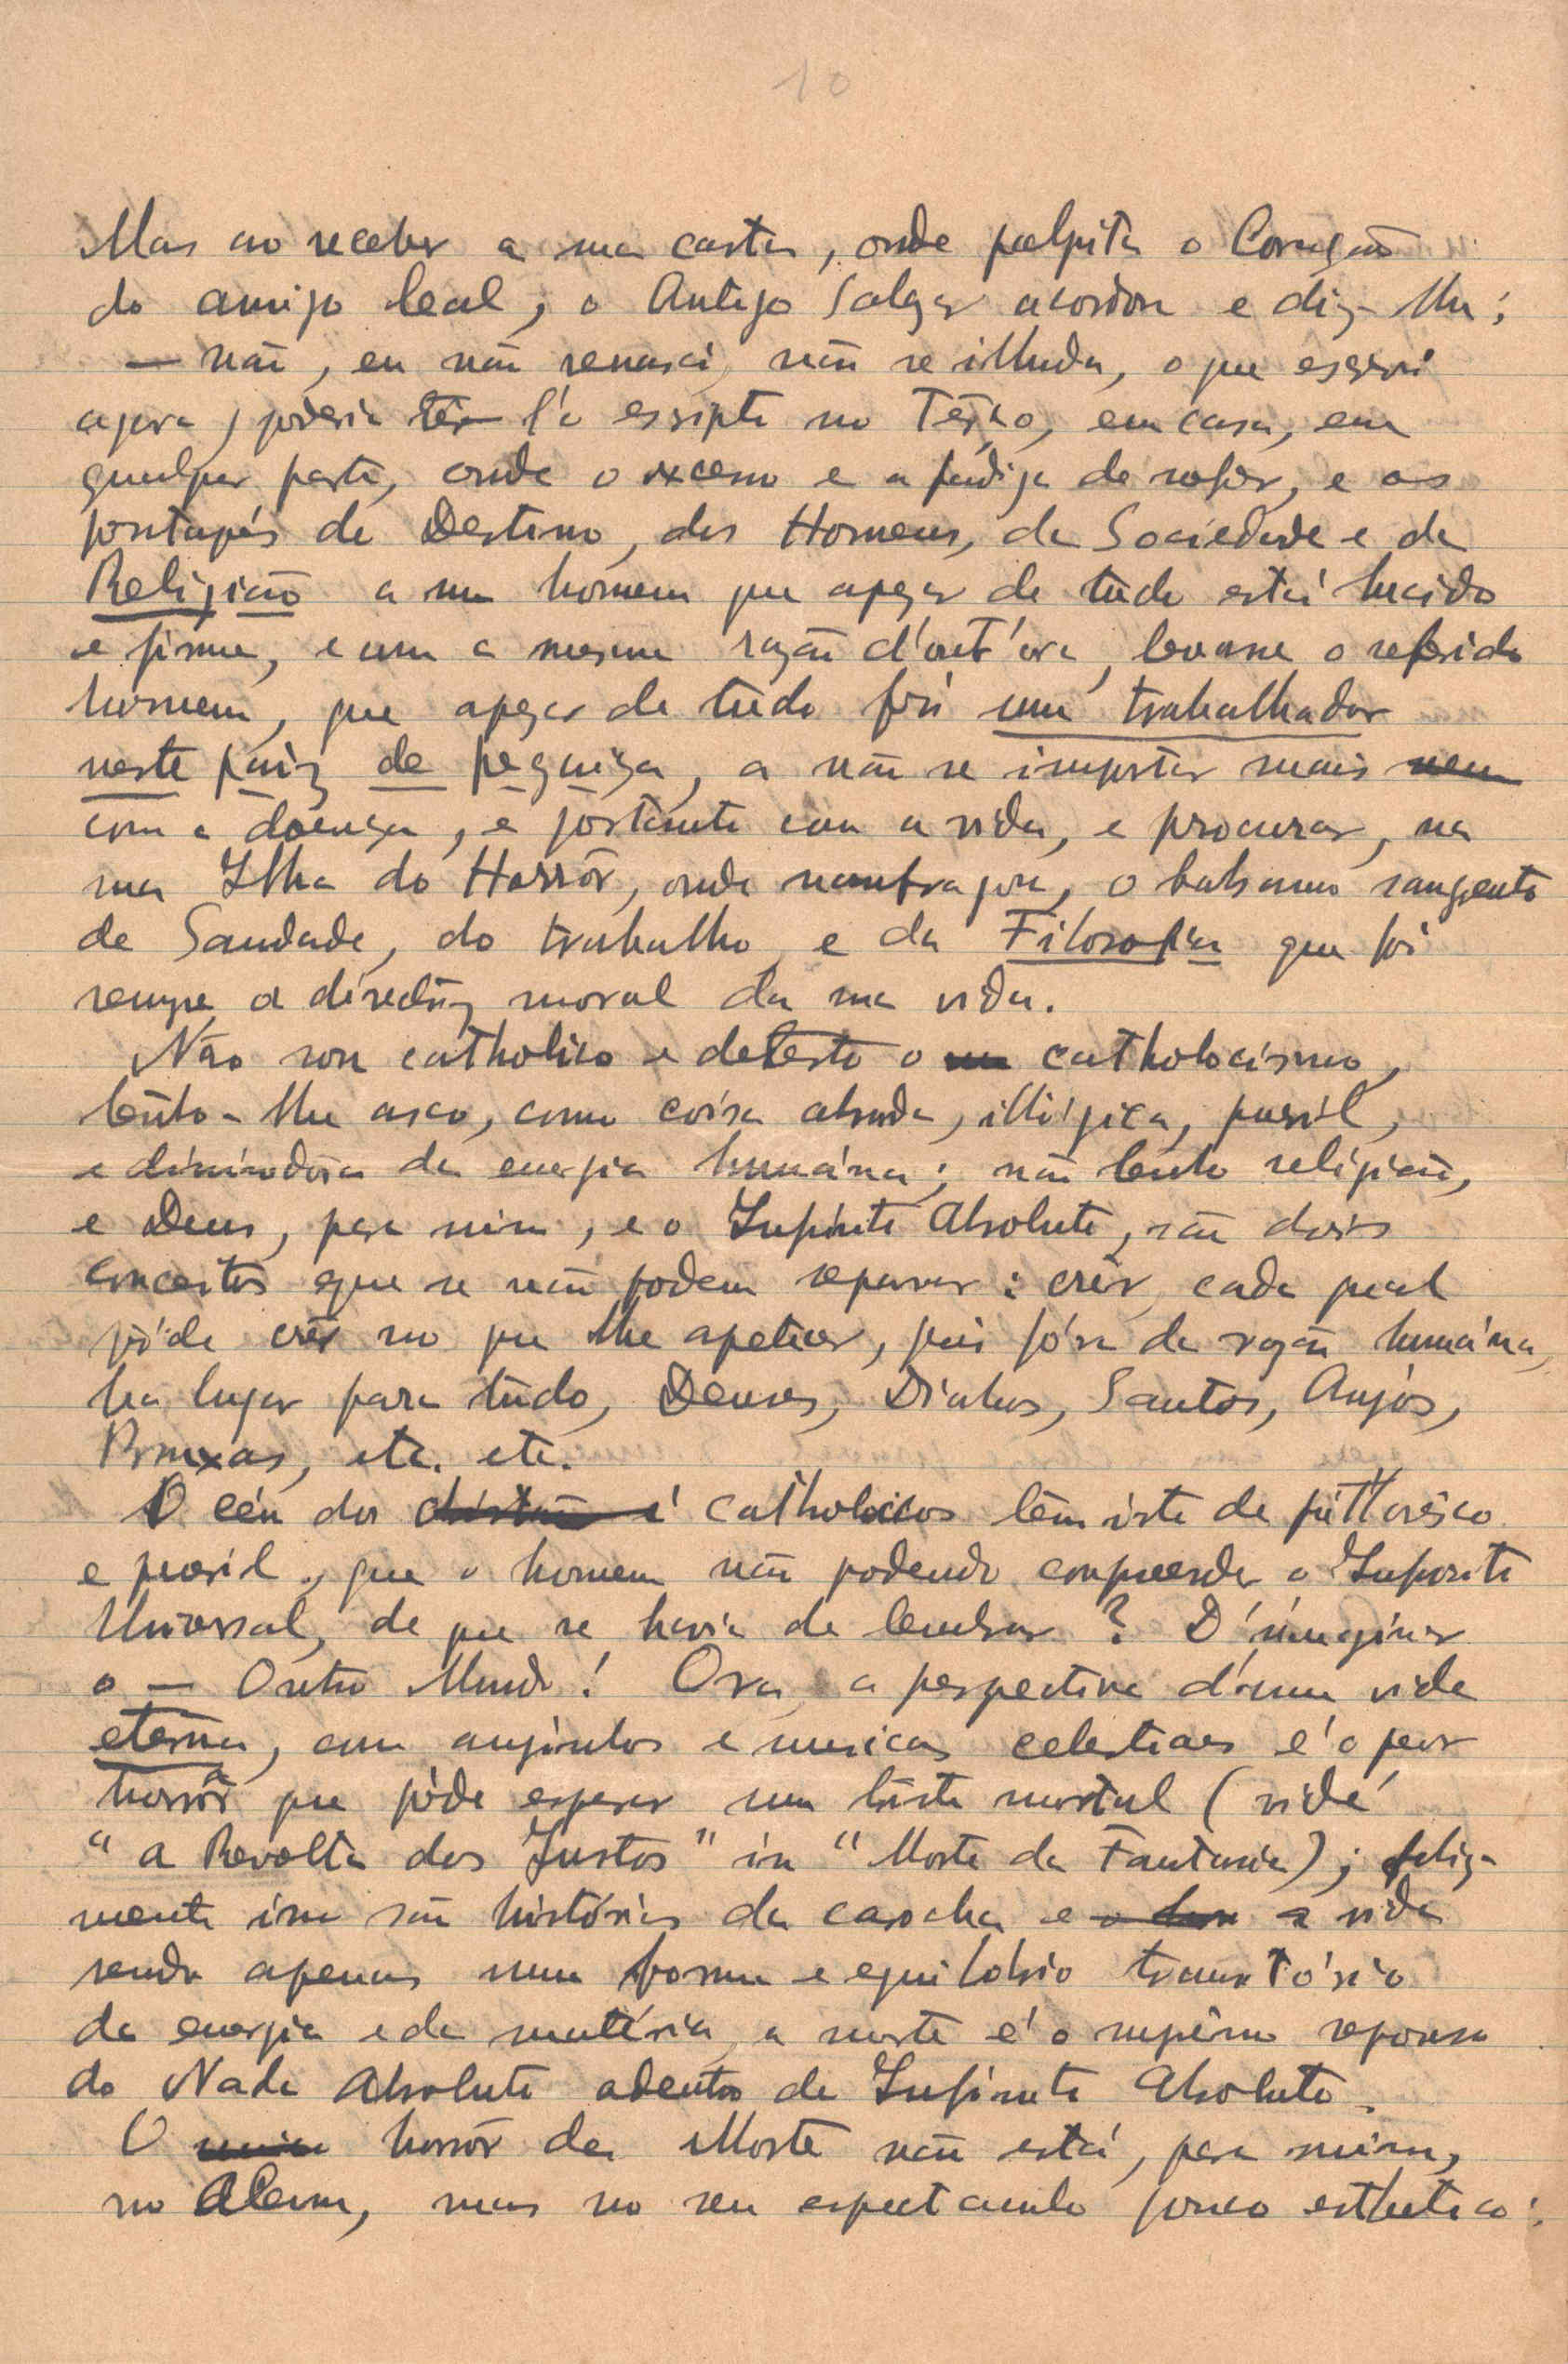 10
Mas ao receber a sua carta, onde palpita o Coração
do amigo leal, o Antigo Salgar acordou e diz-lhe:
— não, eu não renasci, não se illuda, o que escrevi
agora, poderia têr-l'o escripto no Têrço, em casa, em
qualquer parte, onde o excesso e a fadiga de sofrer, e os
pontapés do Destino, dos Homens, da Sociedade e da
Religião a um homem que apezar de tudo está lucido
e firme, e com a mesma razão d'outr'ora, levasse o referido
homem, que apezar de tudo foi um trabalhador
neste paiz de peguiça, a não se importar mais nem
com a doença, e portanto com a vida, e procurar, na
sua Ilha do Horrôr, onde naufragou, o balsamo sangrento
da Saudade, do trabalho e da Filosofia que foi
sempre a directriz moral da sua vida.
Não sou catholico e detesto o catholocismo,
tenho-lhe asco, como coisa absurda, illógica, pueril,
e diminuidôra da energia humâna; não tenho religião,
e Deus, para mim, e o Infinito Absoluto, são dois
conceitos que se não podem separar: crêr, cada qual
póde crêr no que lhe apetecer, pois fóra da razão humâna,
ha lugar para tudo, Deuses, Diabos, Santos, Anjos,
Bruxas, etc. etc.
O céu dos catholicos têm isto de pittorêsco
e pueril, que o homem não podendo compreender o Infinito
Universal, de que se havia de lembrar? D'imaginar
o — Outro Mundo! Ora, a perspectiva d'uma vida
etérna, com anjinhos e musicas celestiaes é o peor
horrôr que póde esperar um triste mortal (vidé
"a Revolta dos Justos" in "Morte da Fantasia); feliz-
mente isso são histórias da carocha e a vida
sendo apenas uma forma e equilobrio transitório
da energia e da matéria, a morte é o suprêmo repouso
do Nada Absoluto adentro do Infinito Absoluto.
O horrôr da Morte não está, para mim,
no Alem, mas no seu espectaculo pouco esthetico: